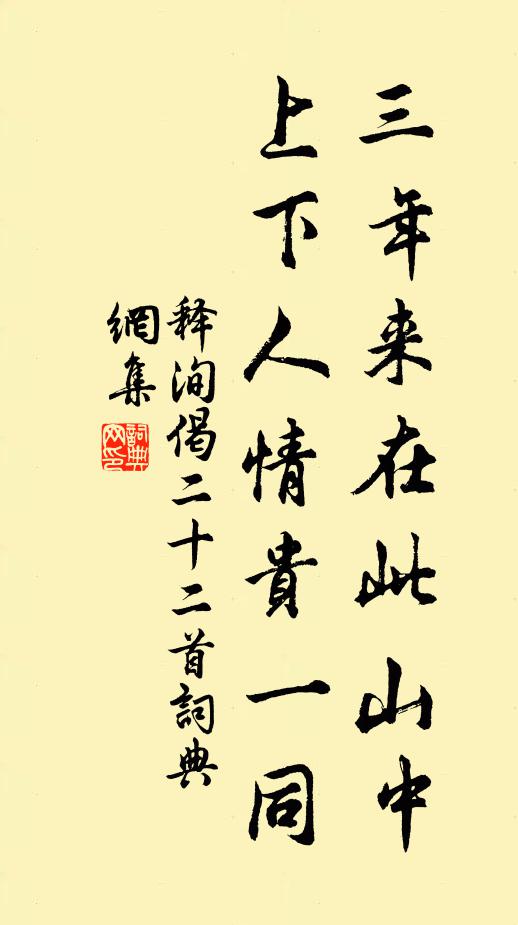 三年来在此山中
上下人情貴一同
释洵偈二十二首詞典
網集
詞典
网印